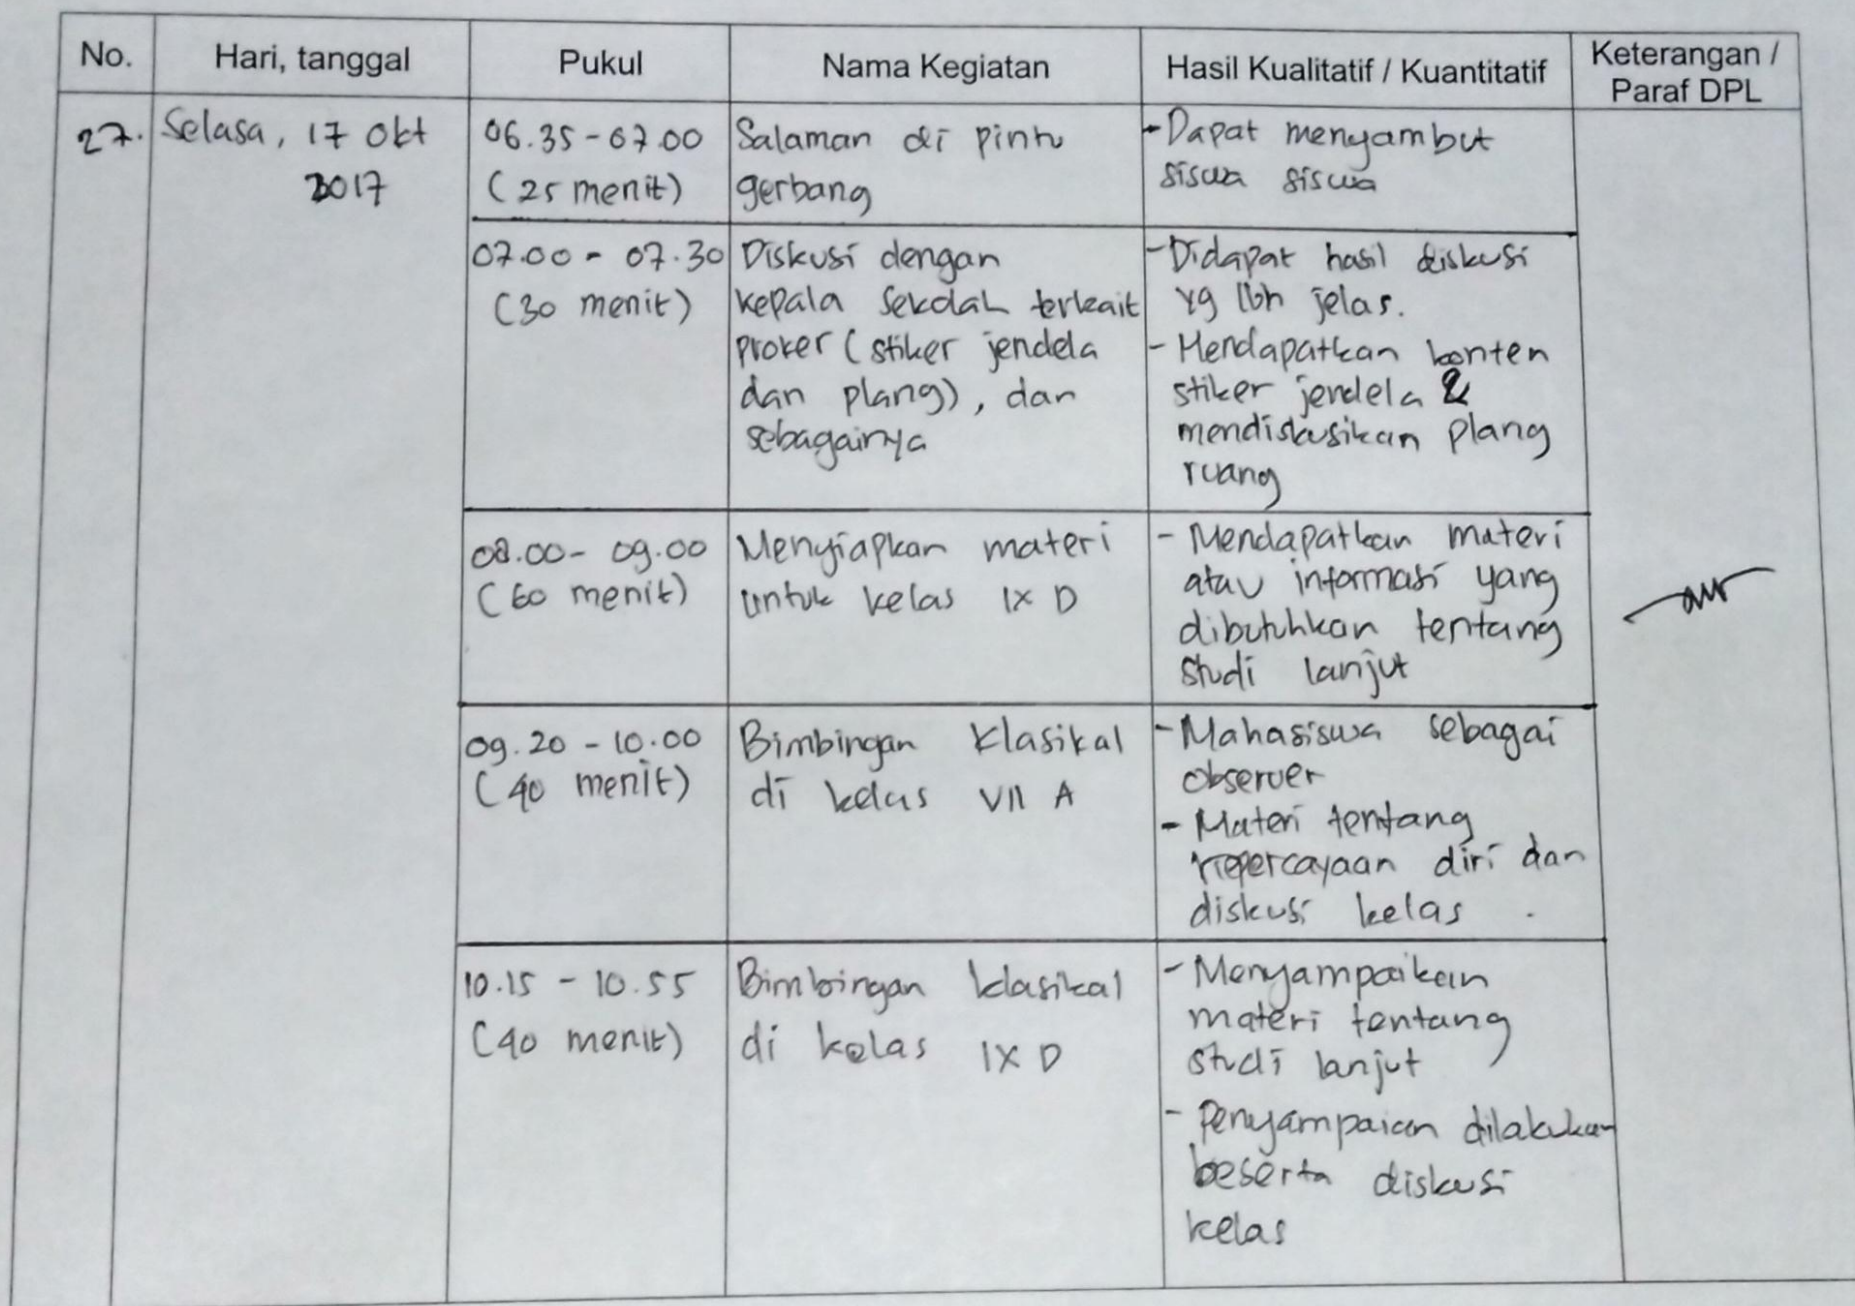 No. Hari, tanggal Pukul Nama Kegiatan Hasil Kualitatif / Kuantitatif Keterangan / Paraf DPL
27. Selasa, 17 Okt
2017
06.35 - 07.00
(25 menit)
Salaman di pintu
gerbang
- Dapat menyambut
siswa siswa
07.00 - 07.30
(30 menit)
Diskusi dengan
kepala sekolah terkait
proker (stiker jendela
dan plang), dan
sebagainya
- Didapat hasil diskusi
yg lbh jelas.
- Mendapatkan konten
stiker jendela &
mendiskusikan plang
ruang
08.00 - 09.00
(60 menit)
Menyiapkan materi
untuk kelas IX D
- Mendapatkan materi
atau informasi yang
dibutuhkan tentang
studi lanjut
09.20 - 10.00
(40 menit)
Bimbingan klasikal
di kelas VII A
- Mahasiswa sebagai
observer
- Materi tentang
kepercayaan diri dan
diskusi kelas.
10.15 - 10.55
(40 menit)
Bimbingan klasikal
di kelas IX D
- Menyampaikan
materi tentang
studi lanjut
- Penyampaian dilakukan
beserta diskusi
kelas